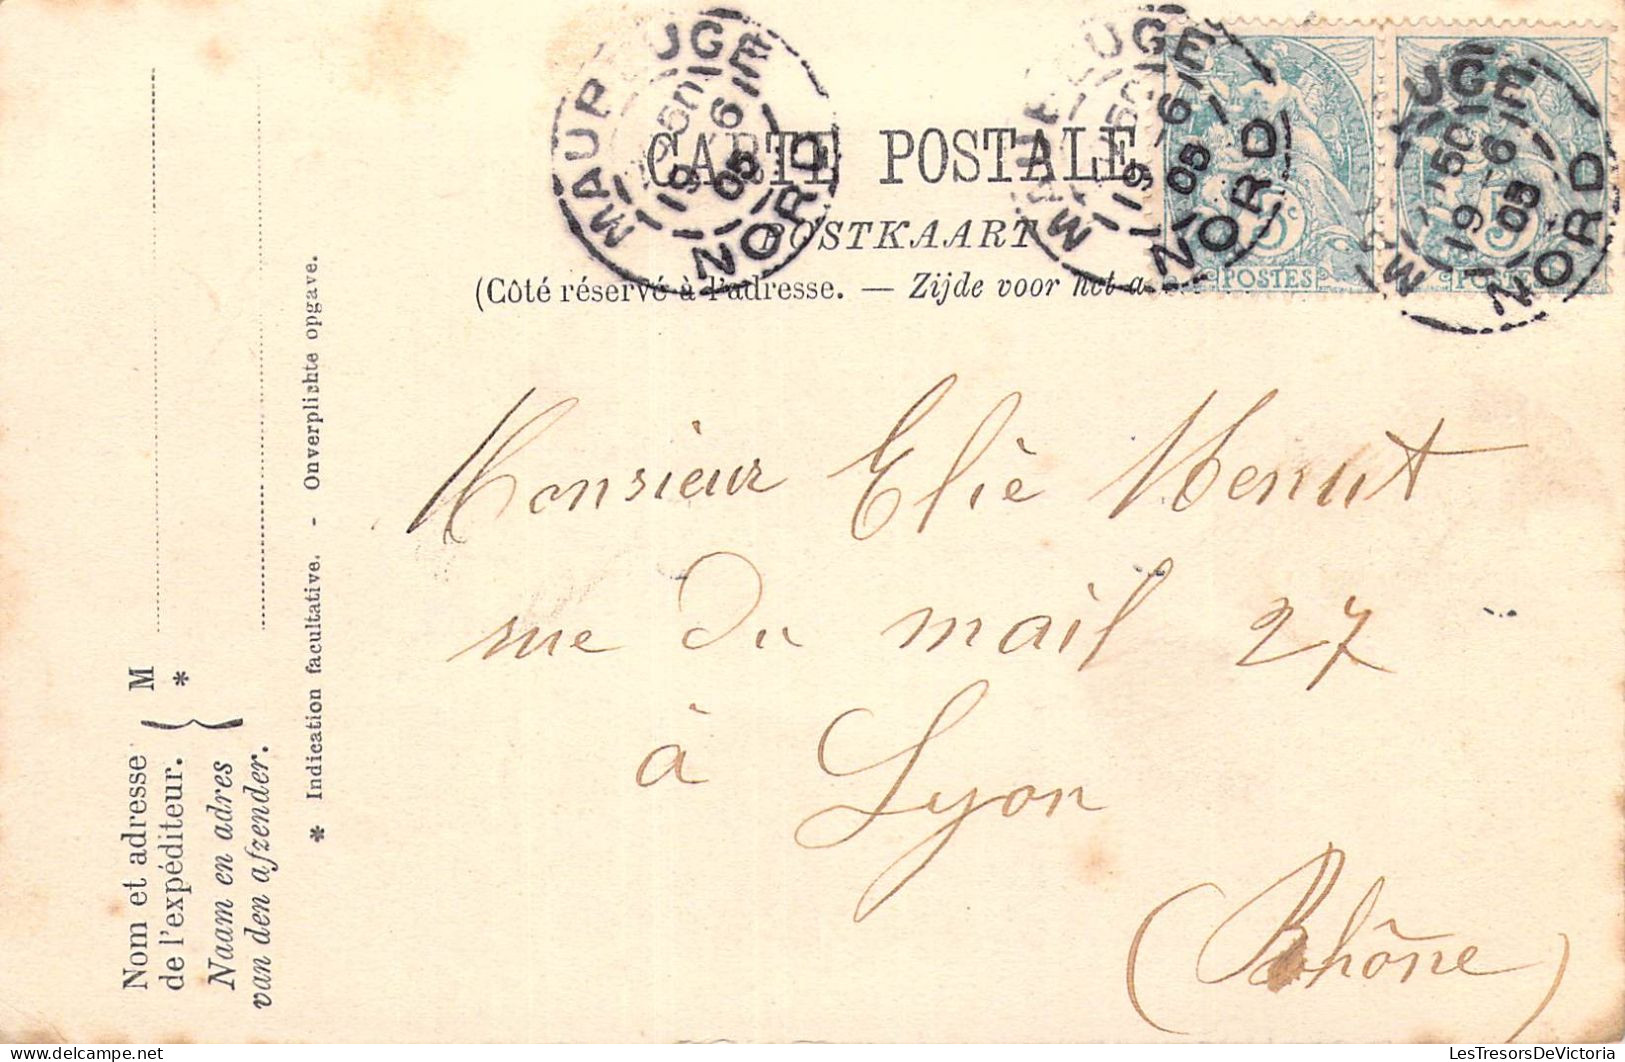 MAUBEUGE
NORD
19 - 6
05
MAUBEUGE
NORD
19 - 6
05
UGE
NORD
19 - 6
05
CARTE POSTALE
POSTKAART
(Côté réservé à l'adresse. — Zijde voor het a
5c
POSTES
5
POSTES
Monsieur Eliè Menut
rue du mail 27
à
Lyon
(Rhône)
Nom et adresse
de l'expéditeur.
Naam en adres
van den afzender.
M
*
* Indication facultative. - Onverplichte opgave.
LesTresorsDeVictoria